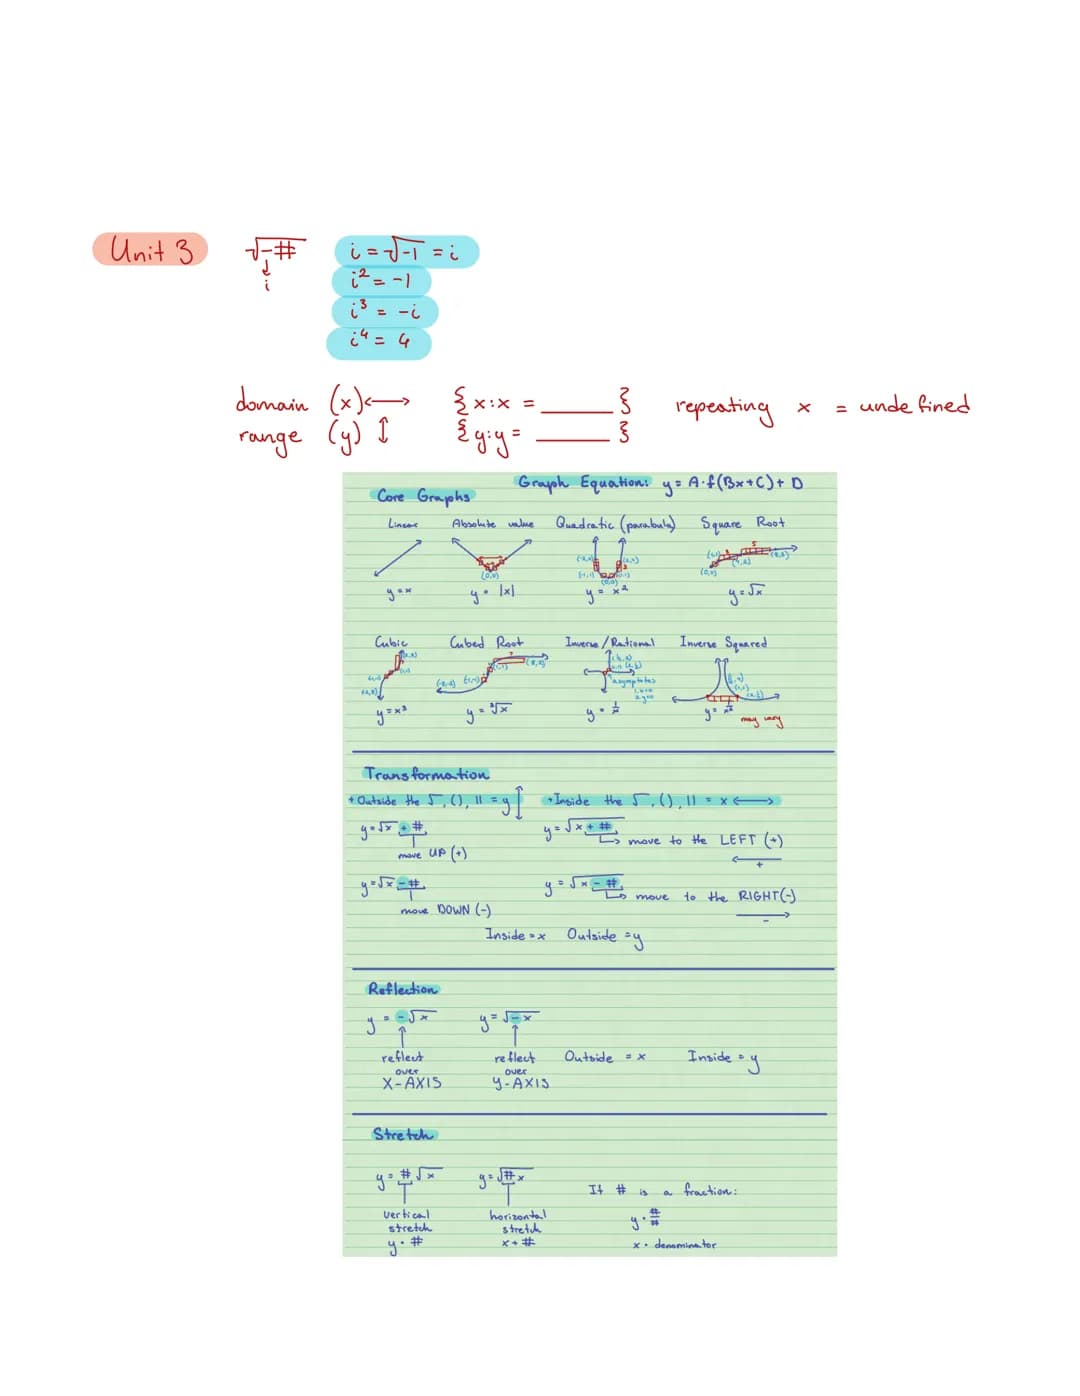 Unit 3
√-#
i
i = √-1 = i
i² = -1
i³ = -i
i⁴ = 4
domain (x) ↔ {x:x = ____ }
range (y) ↕ {y:y = ____ }
repeating x = undefined
Core Graphs
Graph Equation: y = A·f(Bx+C)+D
Linear
y = x
Absolute value
(0,0)
y = |x|
Quadratic (parabula)
(-1,1)
(0,0)
y = x²
Square Root
(0,0)
y = √x
Cubic
y = x³
Cubed Root
y = ³√x
Inverse/Rational
asymptotes
y = 1/x
Inverse Squared
y = 1/x²
may vary
Transformation
+ Outside the √, (), || = y ↕
y = √x + #
move UP (+)
y = √x - #
move DOWN (-)
+ Inside the √, (), || = x ↔
y = √x + #
→ move to the LEFT (+)
+
y = √x - #
→ move to the RIGHT(-)
-
Inside = x Outside = y
Reflection
y = -√x
reflect
over
X-AXIS
y = √-x
reflect
over
y-AXIS
Outside = x Inside = y
Stretch
y = #√x
vertical
stretch
y · #
y = √#x
horizontal
stretch
x ÷ #
If # is a fraction:
y · #/#
x · denominator